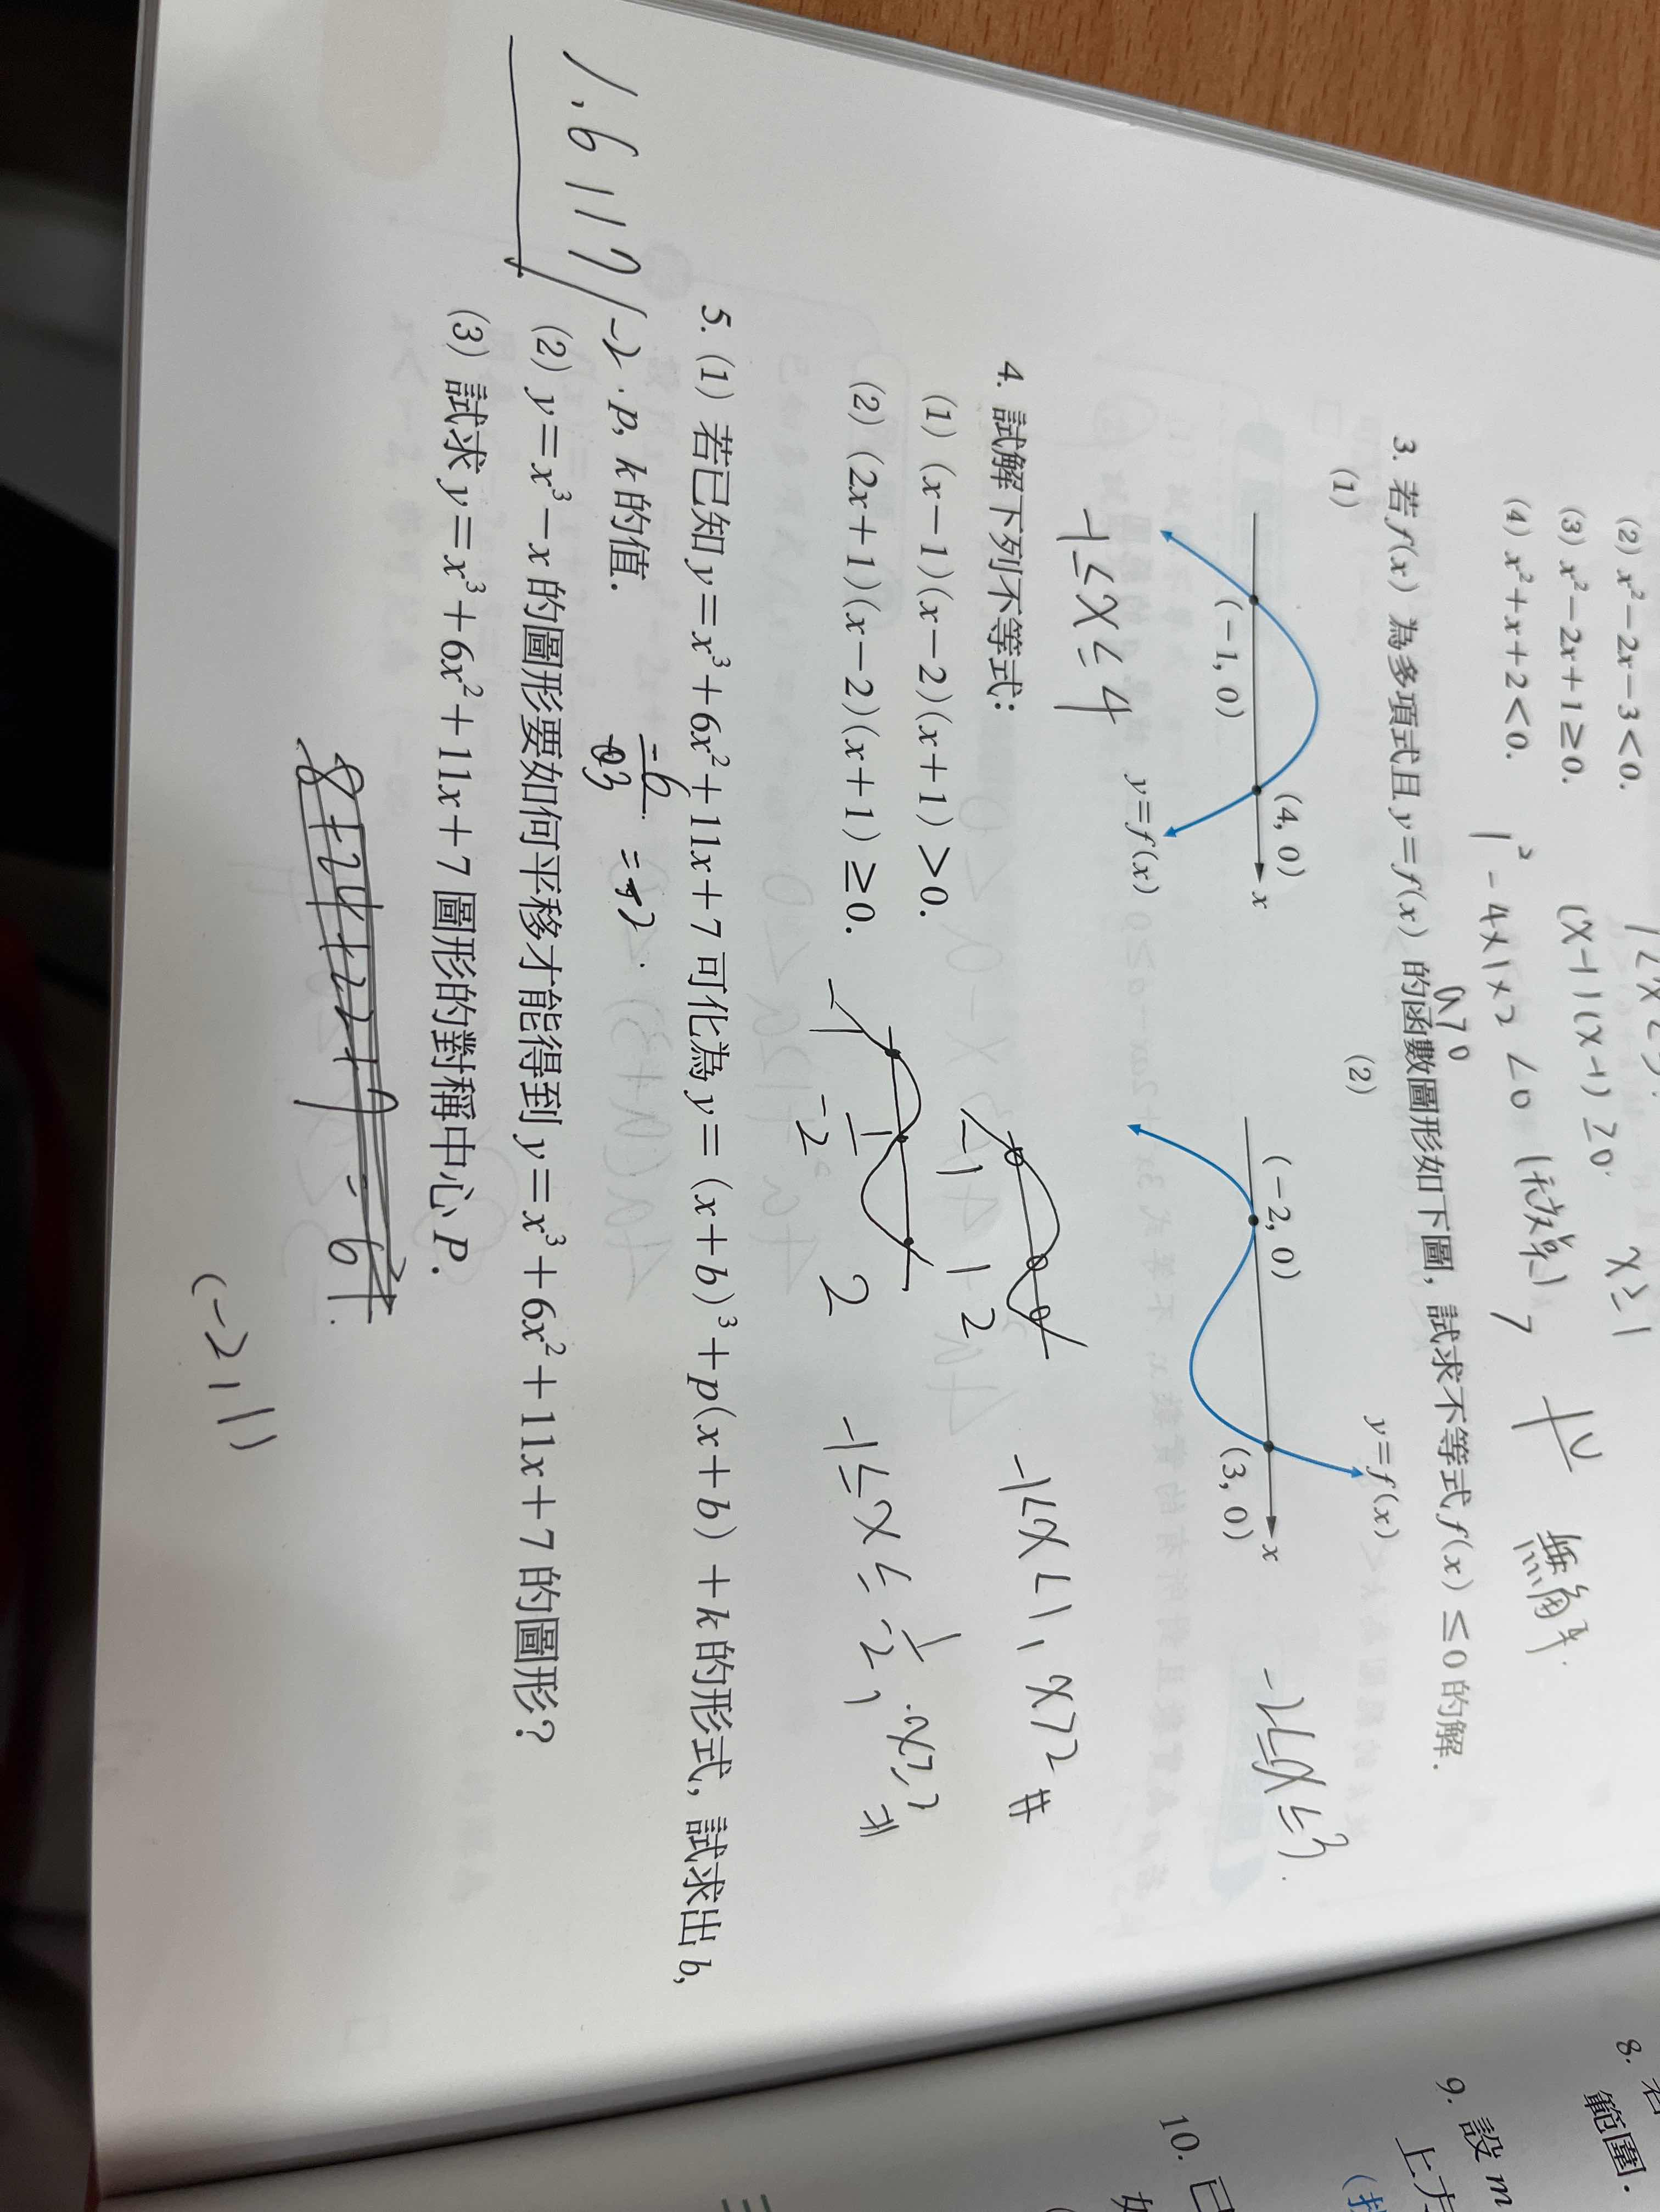 (2) x²－2x－3＜0.
(3) x²－2x＋1≥0.
(x-1)(x-1)≥0.
x≥1
(4) x²＋x＋2＜0.
1²-4×1×2 <0
a>0
無解
3. 若 f(x) 為多項式且 y＝f(x) 的函數圖形如下圖，試求不等式 f(x) ≤0 的解.
(1)
(2)
(－1, 0)
(4, 0)
x
y＝f(x)
(－2, 0)
(3, 0)
x
y＝f(x)
-1≤x≤4
-2≤x≤3
4. 試解下列不等式：
(1) (x－1)(x－2)(x＋1)＞0.
-1 1 2
-1<x<1, x>2 #
(2) (2x＋1)(x－2)(x＋1)≥0.
-1 -1/2 2
-1≤x≤-1/2, x≥2
5. (1) 若已知 y＝x³＋6x²＋11x＋7 可化為 y＝(x＋b)³＋p(x＋b)＋k 的形式，試求出 b,
p, k 的值.
-6
3
=-2
1.6 11 7
-2
(2) y＝x³－x 的圖形要如何平移才能得到 y＝x³＋6x²＋11x＋7 的圖形？
(3) 試求 y＝x³＋6x²＋11x＋7 圖形的對稱中心 P.
(-2, 1)
8. 若
範圍.
9. 設 m
上方
10. 已